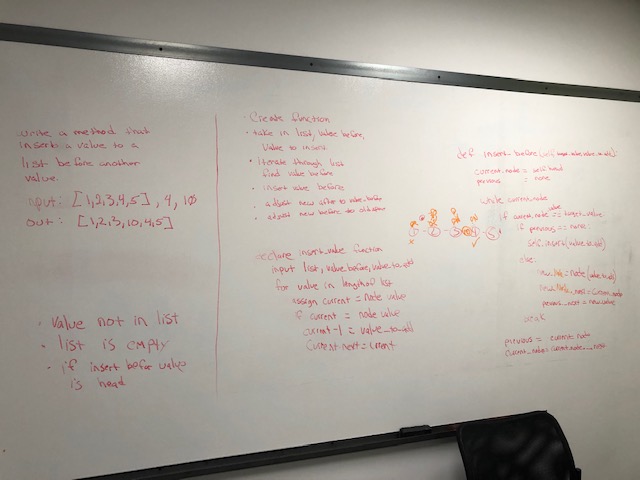 write a method that
inserts a value to a
list before another
value.
input: [1,2,3,4,5], 4, 10
out: [1,2,3,10,4,5]
• Value not in list
• list is empty
• if insert before value
is head
Create function
• take in list, value before,
value to insert
• iterate through list
find value before
• insert value before
• adjust new after to value_before
• adjust new before to
declare insert_value function
input list, value before, value_to_add
for value in length of list
assign current = node value
if current = node value
current-1 = value_to_add
current.next = current
def insert_before(self, target_value, value_to_add):
current_node = self.head
previous = none
while current_node
if current_node value == target_value
if previous == none:
self.insert(value_to_add)
else:
= node(value_to_add)
_next = current_node
previous_next = new_value
break
previous = current_node
current_node = current_node._next